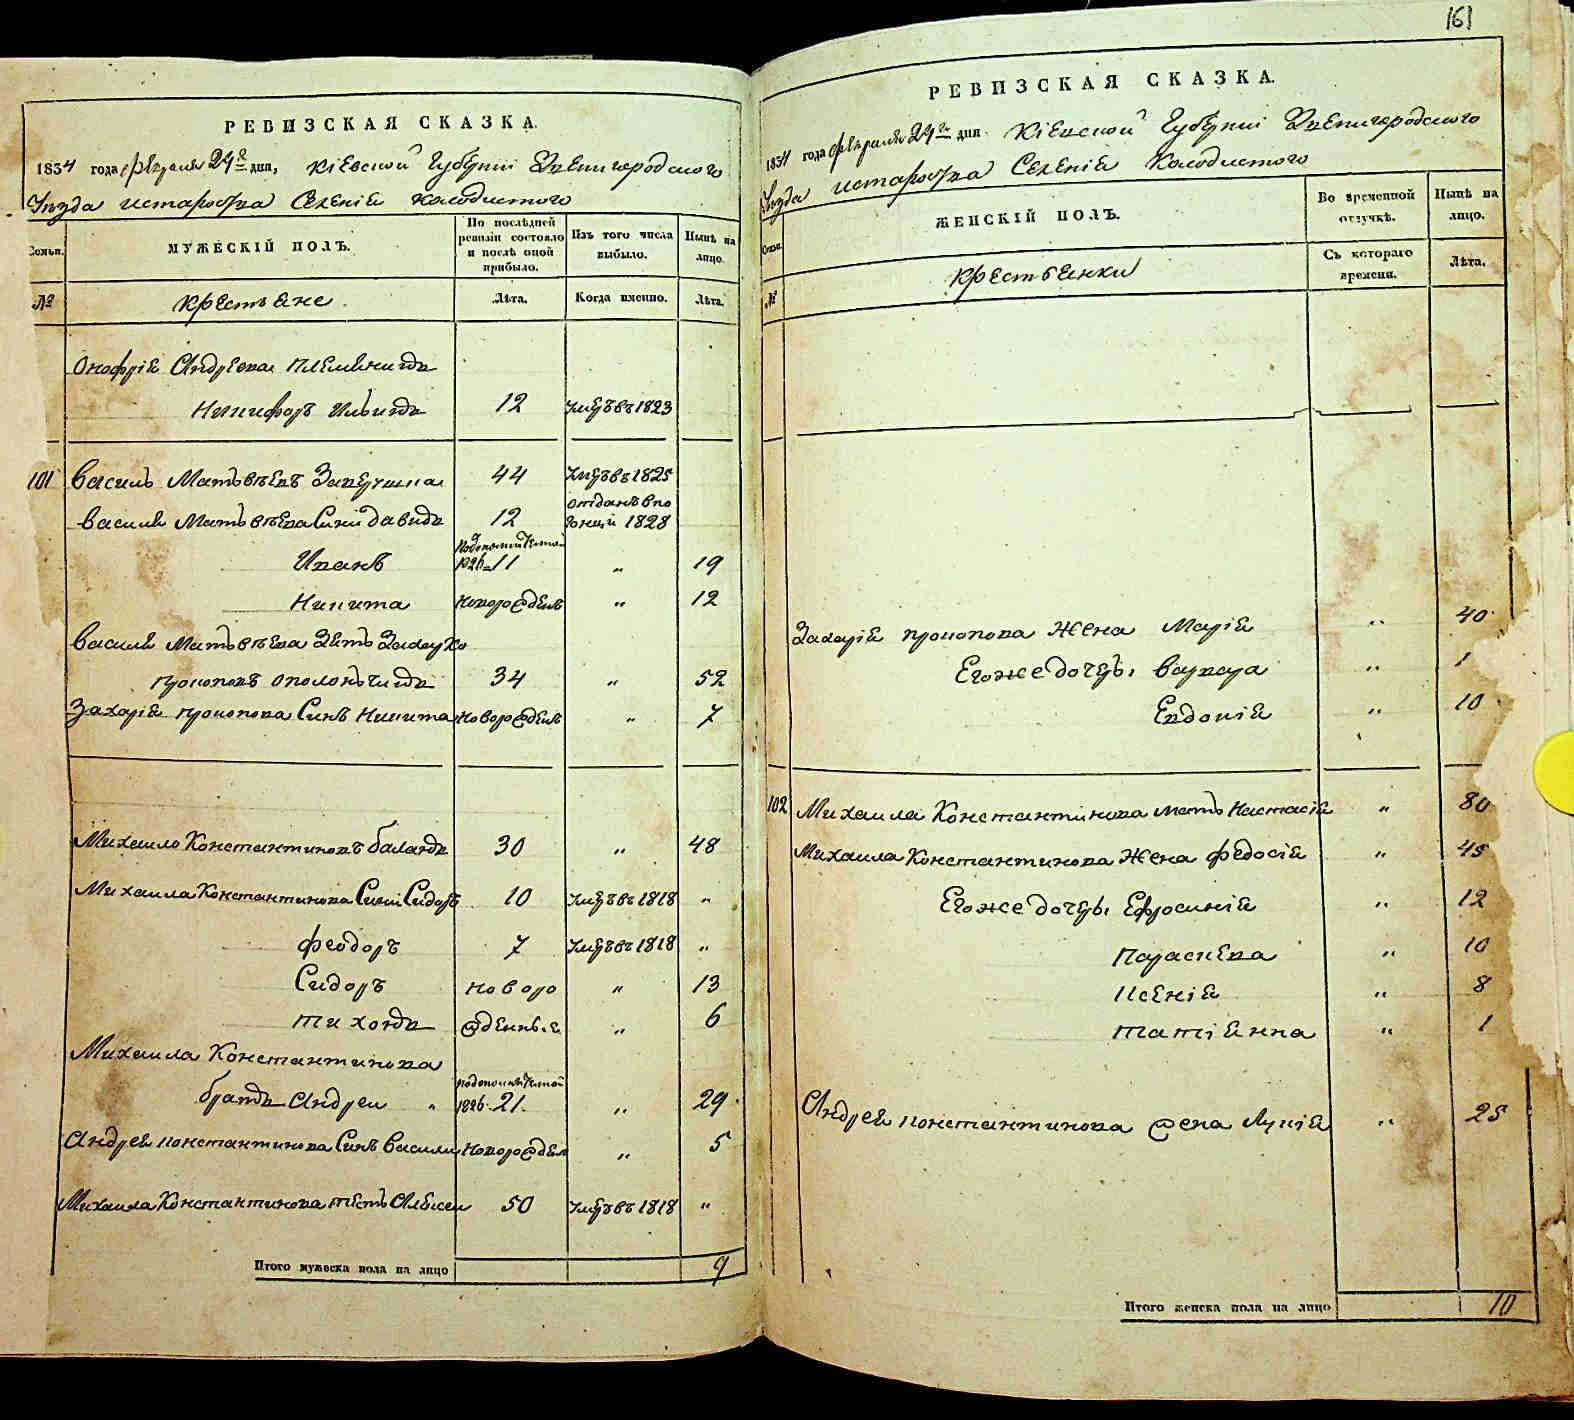 РЕВИЗСКАЯ СКАЗКА.
1834 года февраля 24го дня, Кіевской Губерніи Звенигородского
Уезда староства Селеніе Колодистого
Семьи.
МУЖЕСКІЙ ПОЛЪ.
По послѣдней ревизіи состояло и послѣ оной прибыло.
Изъ того числа выбыло.
Нынѣ на лицо.
№
Крестьяне
Лѣта.
Когда именно.
Лѣта.
Онофрія Андреева племянникъ
Никифоръ Ильинъ 12 умеръ въ 1823
101 Василь Матвѣевъ 44 умеръ въ 1825
Василя Матвѣева Сини Давидъ 12 отданъ в 1828
Иванъ 1826 11 " 19
Никита новорожден " 12
Василя Матвѣева Зять
Прокоповъ 34 " 52
Захарія Прокопова Синъ Никита новорожден " 7
Михаило Константиновъ Баланда 30 " 48
Михаила Константинова Сини Сидоръ 10 умеръ въ 1818 "
Феодоръ 7 умеръ въ 1818 "
Сидоръ ново ро " 13
Тихонъ жденные " 6
Михаила Константинова
братъ Андрей " 1826 21. " 29
Андрея Константинова Синъ Василий новорожден " 5
Михаила Константинова тесть Алексей 50 умеръ въ 1818 "
Итого мужеска пола на лицо 9
161
РЕВИЗСКАЯ СКАЗКА.
1834 года февраля 24го дня Кіевской Губерніи Звенигородского
Уезда староства Селеніе Колодистого
Семьи.
ЖЕНСКІЙ ПОЛЪ.
Во временной отлучкѣ.
Нынѣ на лицо.
Съ котораго времени.
Лѣта.
№
Крестьянки
Захарія Прокопова Жена Марія " 40
Егоже дочери Варвара " 1
Евдокія " 10
102 Михаила Константинова мать Настасія " 80
Михаила Константинова Жена Федосія " 45
Егоже дочери Ефросинія " 12
Параскева " 10
Ксенія " 8
Татіянна " 1
Андрея Константинова жена Лукія " 25
Итого женска пола на лицо 10